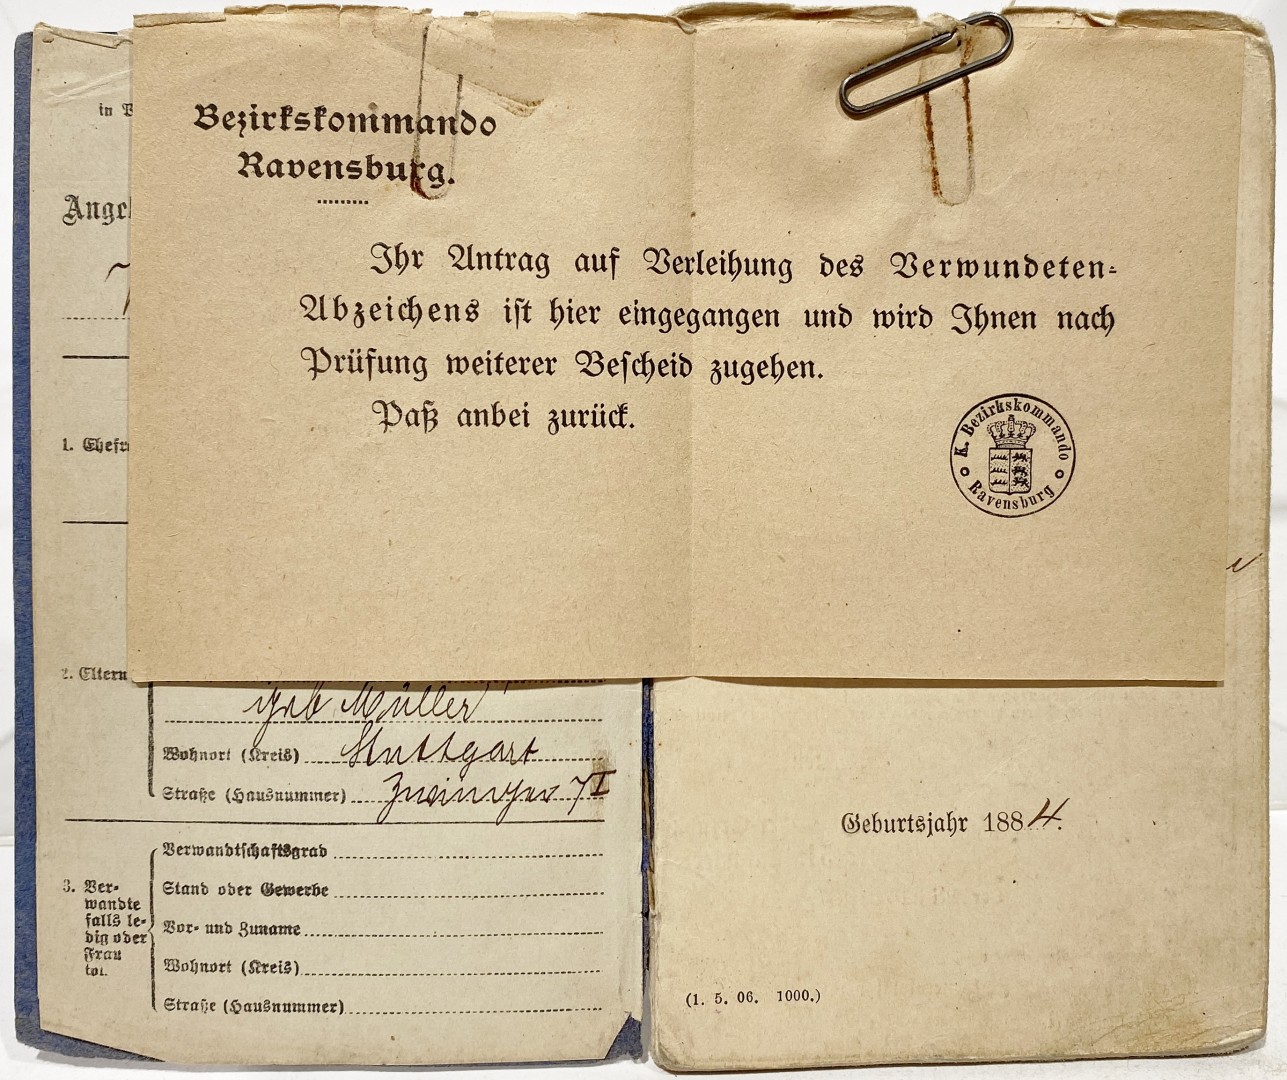 Bezirkskommando
Ravensburg.
Ihr Antrag auf Verleihung des Verwundeten-
Abzeichens ist hier eingegangen und wird Ihnen nach
Prüfung weiterer Bescheid zugehen.
Paß anbei zurück.
K. Bezirkskommando
Ravensburg
in
Angel
1. Ehefr
2. Eltern
geb Müller
Wohnort (Kreis) Stuttgart
Straße (Hausnummer) 7 I
3. Ver-
wandte
falls le-
dig oder
Frau
tot.
Verwandtschaftsgrad
Stand oder Gewerbe
Vor- und Zuname
Wohnort (Kreis)
Straße (Hausnummer)
Geburtsjahr 1884.
(1. 5. 06. 1000.)